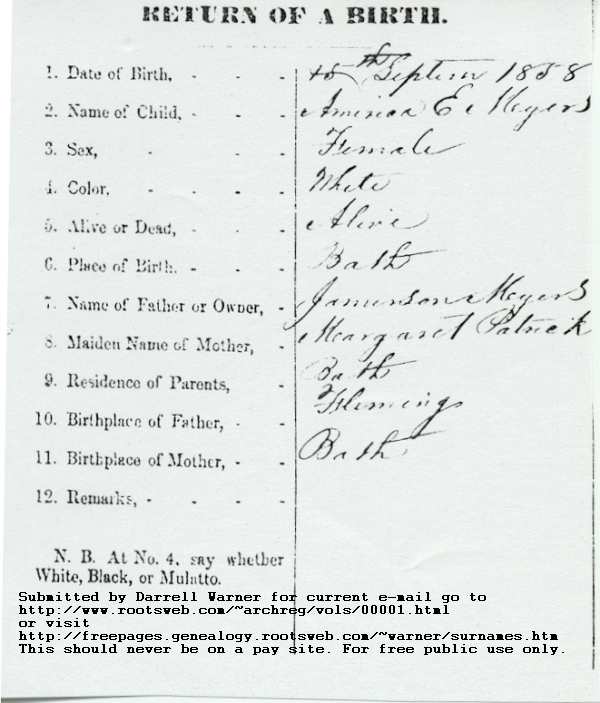 RETURN OF A BIRTH.
1. Date of Birth, - - - 15th Septem 1858
2. Name of Child, - - - E Meyers
3. Sex, - - - Female
4. Color, - - - - White
5. Alive or Dead, - - - Alive
6. Place of Birth. - - - Bath
7. Name of Father or Owner, - Jamerson Meyers
8. Maiden Name of Mother, - Margaret Patrick
9. Residence of Parents, - Bath
10. Birthplace of Father, - - Fleming
11. Birthplace of Mother, - - Bath
12. Remarks, - - - -
N. B. At No. 4, say whether
White, Black, or Mulatto.
Submitted by Darrell Warner for current e-mail go to
http://www.rootsweb.com/~archreg/vols/00001.html
or visit
http://freepages.genealogy.rootsweb.com/~warner/surnames.htm
This should never be on a pay site. For free public use only.